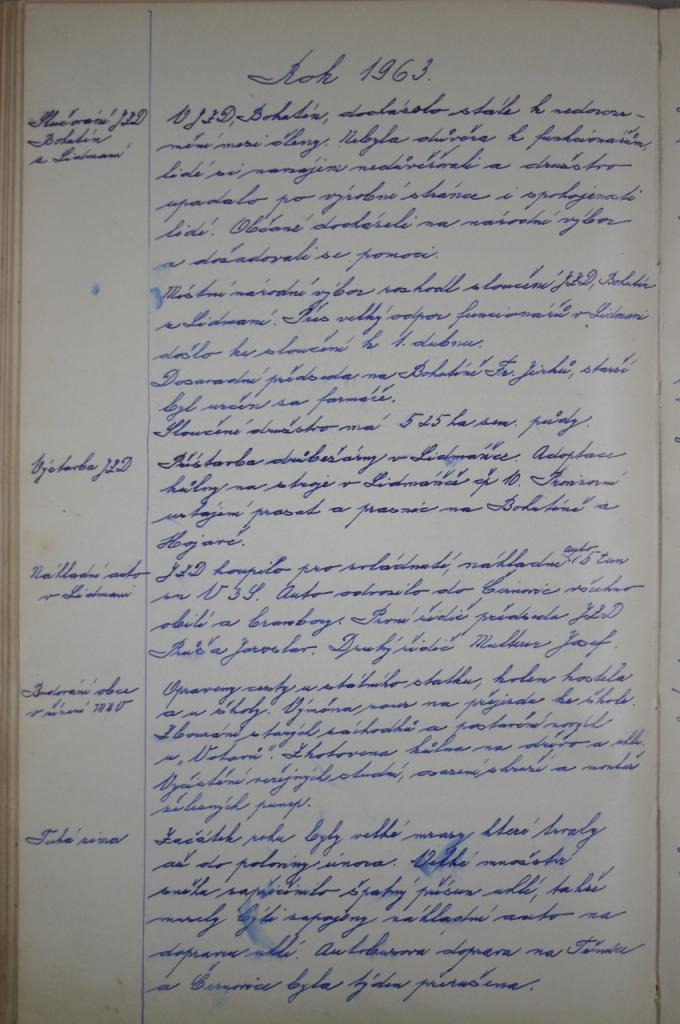 Rok 1963.
Slučování JZD
Bohutín
s Lidmaní
V JZD, Bohutín, docházelo stále k nedorozu-
mění mezi členy. Nebyla důvěra k funkcionářům,
lidé si navzájem nedůvěřovali a družstvo
upadalo po výrobní stránce i spokojenosti
lidí. Občané docházeli na národní výbor
a dožadovali se pomoci.
Místní národní výbor rozhodl sloučení JZD, Bohutín
s Lidmaní. Přes velký odpor funcionářů v Lidmani
došlo ke sloučení k 1. dubnu.
Dosavadní předseda na Bohutíně Fr. Jirků, starší
byl určen za farmáře.
Sloučené družstvo má 525 ha zem. půdy.
Výstavba JZD
Přístavba drůbežárny v Lidmaňce. Adoptace
kůlny na stroje v Lidmaňce čp 10. Provizorní
ustájení prasat a prasnic na Bohutíně a
Hojavč.
Nákladní auto
v Lidmani
JZD koupilo pro zvládnutí, nákladní auto 5 tun
zn V3S. Auto odvozilo do Černovic všechno
obilí a brambory. První řidič předseda JZD
Průša Jaroslav. Druhý řidič Josef.
Budování obce
v řízení MNV
Opraveny cesty u státního statku, kolem kostela
a u školy. Výměna rour na příjezdu ke škole.
Zbourání starých záchodků a postavění nových
u „Votavů". Zhotovena kůlna na dřevo a uhlí.
Vyčistění veřejných studní, osazení skruží a montáž
železných pump.
Tuhá zima
Začátek roku byly velké mrazy které trvaly
až do poloviny února. Velké množství
sněhu zapřičinilo špatný přísun uhlí, takže
musely býti zapojeny nákladní auto na
dopravu uhlí. Autobusová doprava na
a Černovice byla týden přerušena.